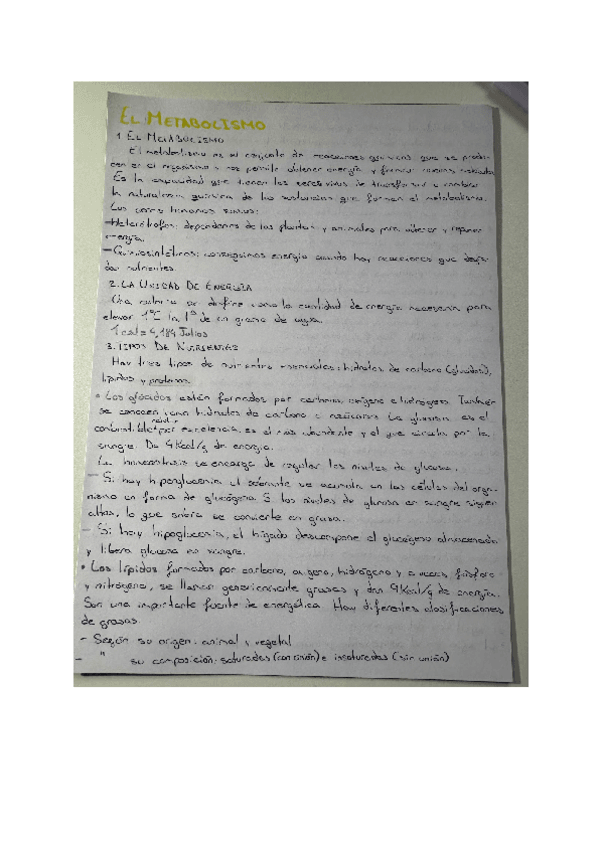 EL METABOLISMO
1. EL METABOLISMO
El metabolismo es el conjunto de reacciones químicas que se produ-
cen en el organismo y nos permite obtener energía y formar
Es la capacidad que tienen los seres vivos de transformar o cambiar
la naturaleza química de las sustancias que forman el metabolismo.
Los seres humanos somos:
- Heterótrofos: dependemos de las plantas y animales para obtener y reponer
energía.
- Quimiosintéticos: conseguimos energía cuando hay reacciones que
dan nutrientes.
2. LA UNIDAD DE ENERGÍA
Una caloría se define como la cantidad de energía necesaria para
elevar 1°C la Tª de un gramo de agua.
1 cal = 4,184 Julios
3. TIPOS DE NUTRIENTES
Hay tres tipos de nutrientes esenciales: hidratos de carbono (glúcidos),
lípidos y proteínas.
• Los glúcidos están formados por carbono, oxígeno e hidrógeno. También
se conocen como hidratos de carbono o azúcares. La glucosa es el
combustible por excelencia, es el más abundante y el que circula por la
sangre. Da 4 Kcal/g de energía.
La homeostasis se encarga de regular los niveles de glucosa.
- Si hay hiperglucemia el sobrante se acumula en las células del orga-
nismo en forma de glucógeno. Si los niveles de glucosa en sangre siguen
altos, lo que sobra se convierte en grasa.
- Si hay hipoglucemia, el hígado descompone el glucógeno almacenado
y libera glucosa en sangre.
• Los lípidos formados por carbono, oxígeno, hidrógeno y a veces, fósforo
y nitrógeno, se llaman genéricamente grasas y dan 9 Kcal/g de energía.
Son una importante fuente de energética. Hay diferentes clasificaciones
de grasas
- Según su origen: animal y vegetal
- " su composición: saturadas (con unión) e insaturadas (sin unión)